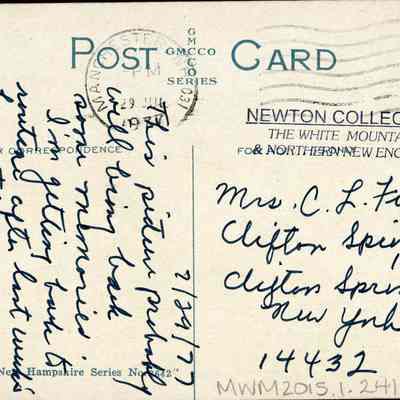 POST CARD
GMCCO
GMCCO
SERIES
MANCHESTER
PM
29 JUL
1977
NEWTON COLLEC
THE WHITE MOUNTA
& NORTHERN NEW ENG
CORRESPONDENCE
FOR
7/29/77
This picture probably
will bring back
some memories.
I'm getting back to
routine after last week's
Mrs. C. L. F
Clifton Spri
Clifton Spri
New York
14432
New Hampshire Series No.
MWM2015.1.241